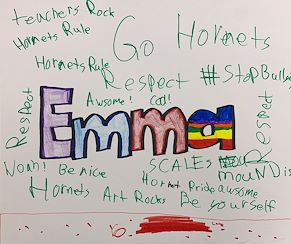 teachers Rock
Hornets Rule
Go Hornets
Hornets Rule
Respect #StopBully
Awsome! Cool!
Respect
Emma
Respect
Noah! Be nice
SCALES
mouNDis
Hornet Pride awsome
Hornets Art Rocks Be yourself